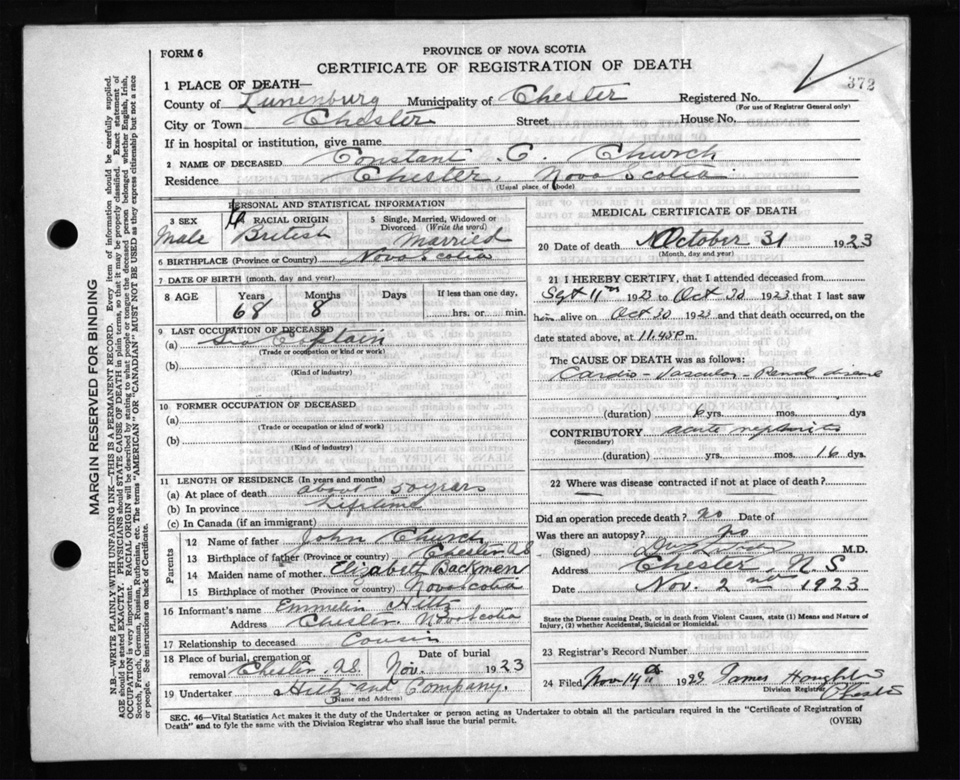 FORM 6
PROVINCE OF NOVA SCOTIA
CERTIFICATE OF REGISTRATION OF DEATH
372
1 PLACE OF DEATH—
County of Lunenburg Municipality of Chester Registered No.
(For use of Registrar General only)
City or Town Chester Street House No.
If in hospital or institution, give name
2 NAME OF DECEASED Constant C. Church
Residence Chester, Nova Scotia
(Usual place of abode)
PERSONAL AND STATISTICAL INFORMATION
3 SEX Male
4 RACIAL ORIGIN British
5 Single, Married, Widowed or Divorced (Write the word) Married
6 BIRTHPLACE (Province or Country) Nova Scotia
7 DATE OF BIRTH (month, day and year)
8 AGE Years Months Days If less than one day,
68 8 hrs. or min.
9 LAST OCCUPATION OF DECEASED
(a) Sea Captain
(Trade or occupation or kind of work)
(b)
(Kind of industry)
10 FORMER OCCUPATION OF DECEASED
(a)
(Trade or occupation or kind of work)
(b)
(Kind of industry)
11 LENGTH OF RESIDENCE (In years and months)
(a) At place of death about 50 years
(b) In province Lifetime
(c) In Canada (if an immigrant)
Parents
12 Name of father John Church
13 Birthplace of father (Province or country) Chester N.S
14 Maiden name of mother Elizabeth Backman
15 Birthplace of mother (Province or country) Nova Scotia
16 Informant's name Emmelin Hiltz
Address Chester Nova Scotia
17 Relationship to deceased Cousin
18 Place of burial, cremation or removal Chester N.S. Date of burial Nov. 1923
19 Undertaker Hiltz and Company.
(Name and Address)
MEDICAL CERTIFICATE OF DEATH
20 Date of death October 31 1923
(Month, day and year)
21 I HEREBY CERTIFY, that I attended deceased from
Sept 11th 1923 to Oct 30 1923 that I last saw
him alive on Oct 30 1923 and that death occurred, on the
date stated above, at 11.45 P m.
The CAUSE OF DEATH was as follows:
Cardio-Vascular-Renal disease
(duration) 6 yrs. mos. dys
CONTRIBUTORY acute nephritis
(Secondary)
(duration) yrs. mos. 16 dys.
22 Where was disease contracted if not at place of death?
Did an operation precede death? No Date of
Was there an autopsy? No
(Signed) M.D.
Address Chester, N.S
Date Nov. 2nd 1923
State the Disease causing Death, or in death from Violent Causes, state (1) Means and Nature of Injury, (2) whether Accidental, Suicidal or Homicidal.
23 Registrar's Record Number
24 Filed Nov 14th 1923 James
Division Registrar
SEC. 46—Vital Statistics Act makes it the duty of the Undertaker or person acting as Undertaker to obtain all the particulars required in the "Certificate of Registration of
Death" and to fyle the same with the Division Registrar who shall issue the burial permit.
(OVER)
MARGIN RESERVED FOR BINDING
N.B.—WRITE PLAINLY WITH UNFADING INK—THIS IS A PERMANENT RECORD. Every item of information should be carefully supplied.
AGE should be stated EXACTLY. PHYSICIANS should STATE CAUSE OF DEATH in plain terms, so that it may be properly classified. Exact statement of
OCCUPATION is very important. RACIAL ORIGIN will be described by stating to what people or tongue the deceased person belonged whether English, Irish,
Scotch, French, German, Russian, Ruthenian, etc. The terms "AMERICAN" OR "CANADIAN" MUST NOT BE USED as they express citizenship but not a race
or people. See instructions on back of Certificate.